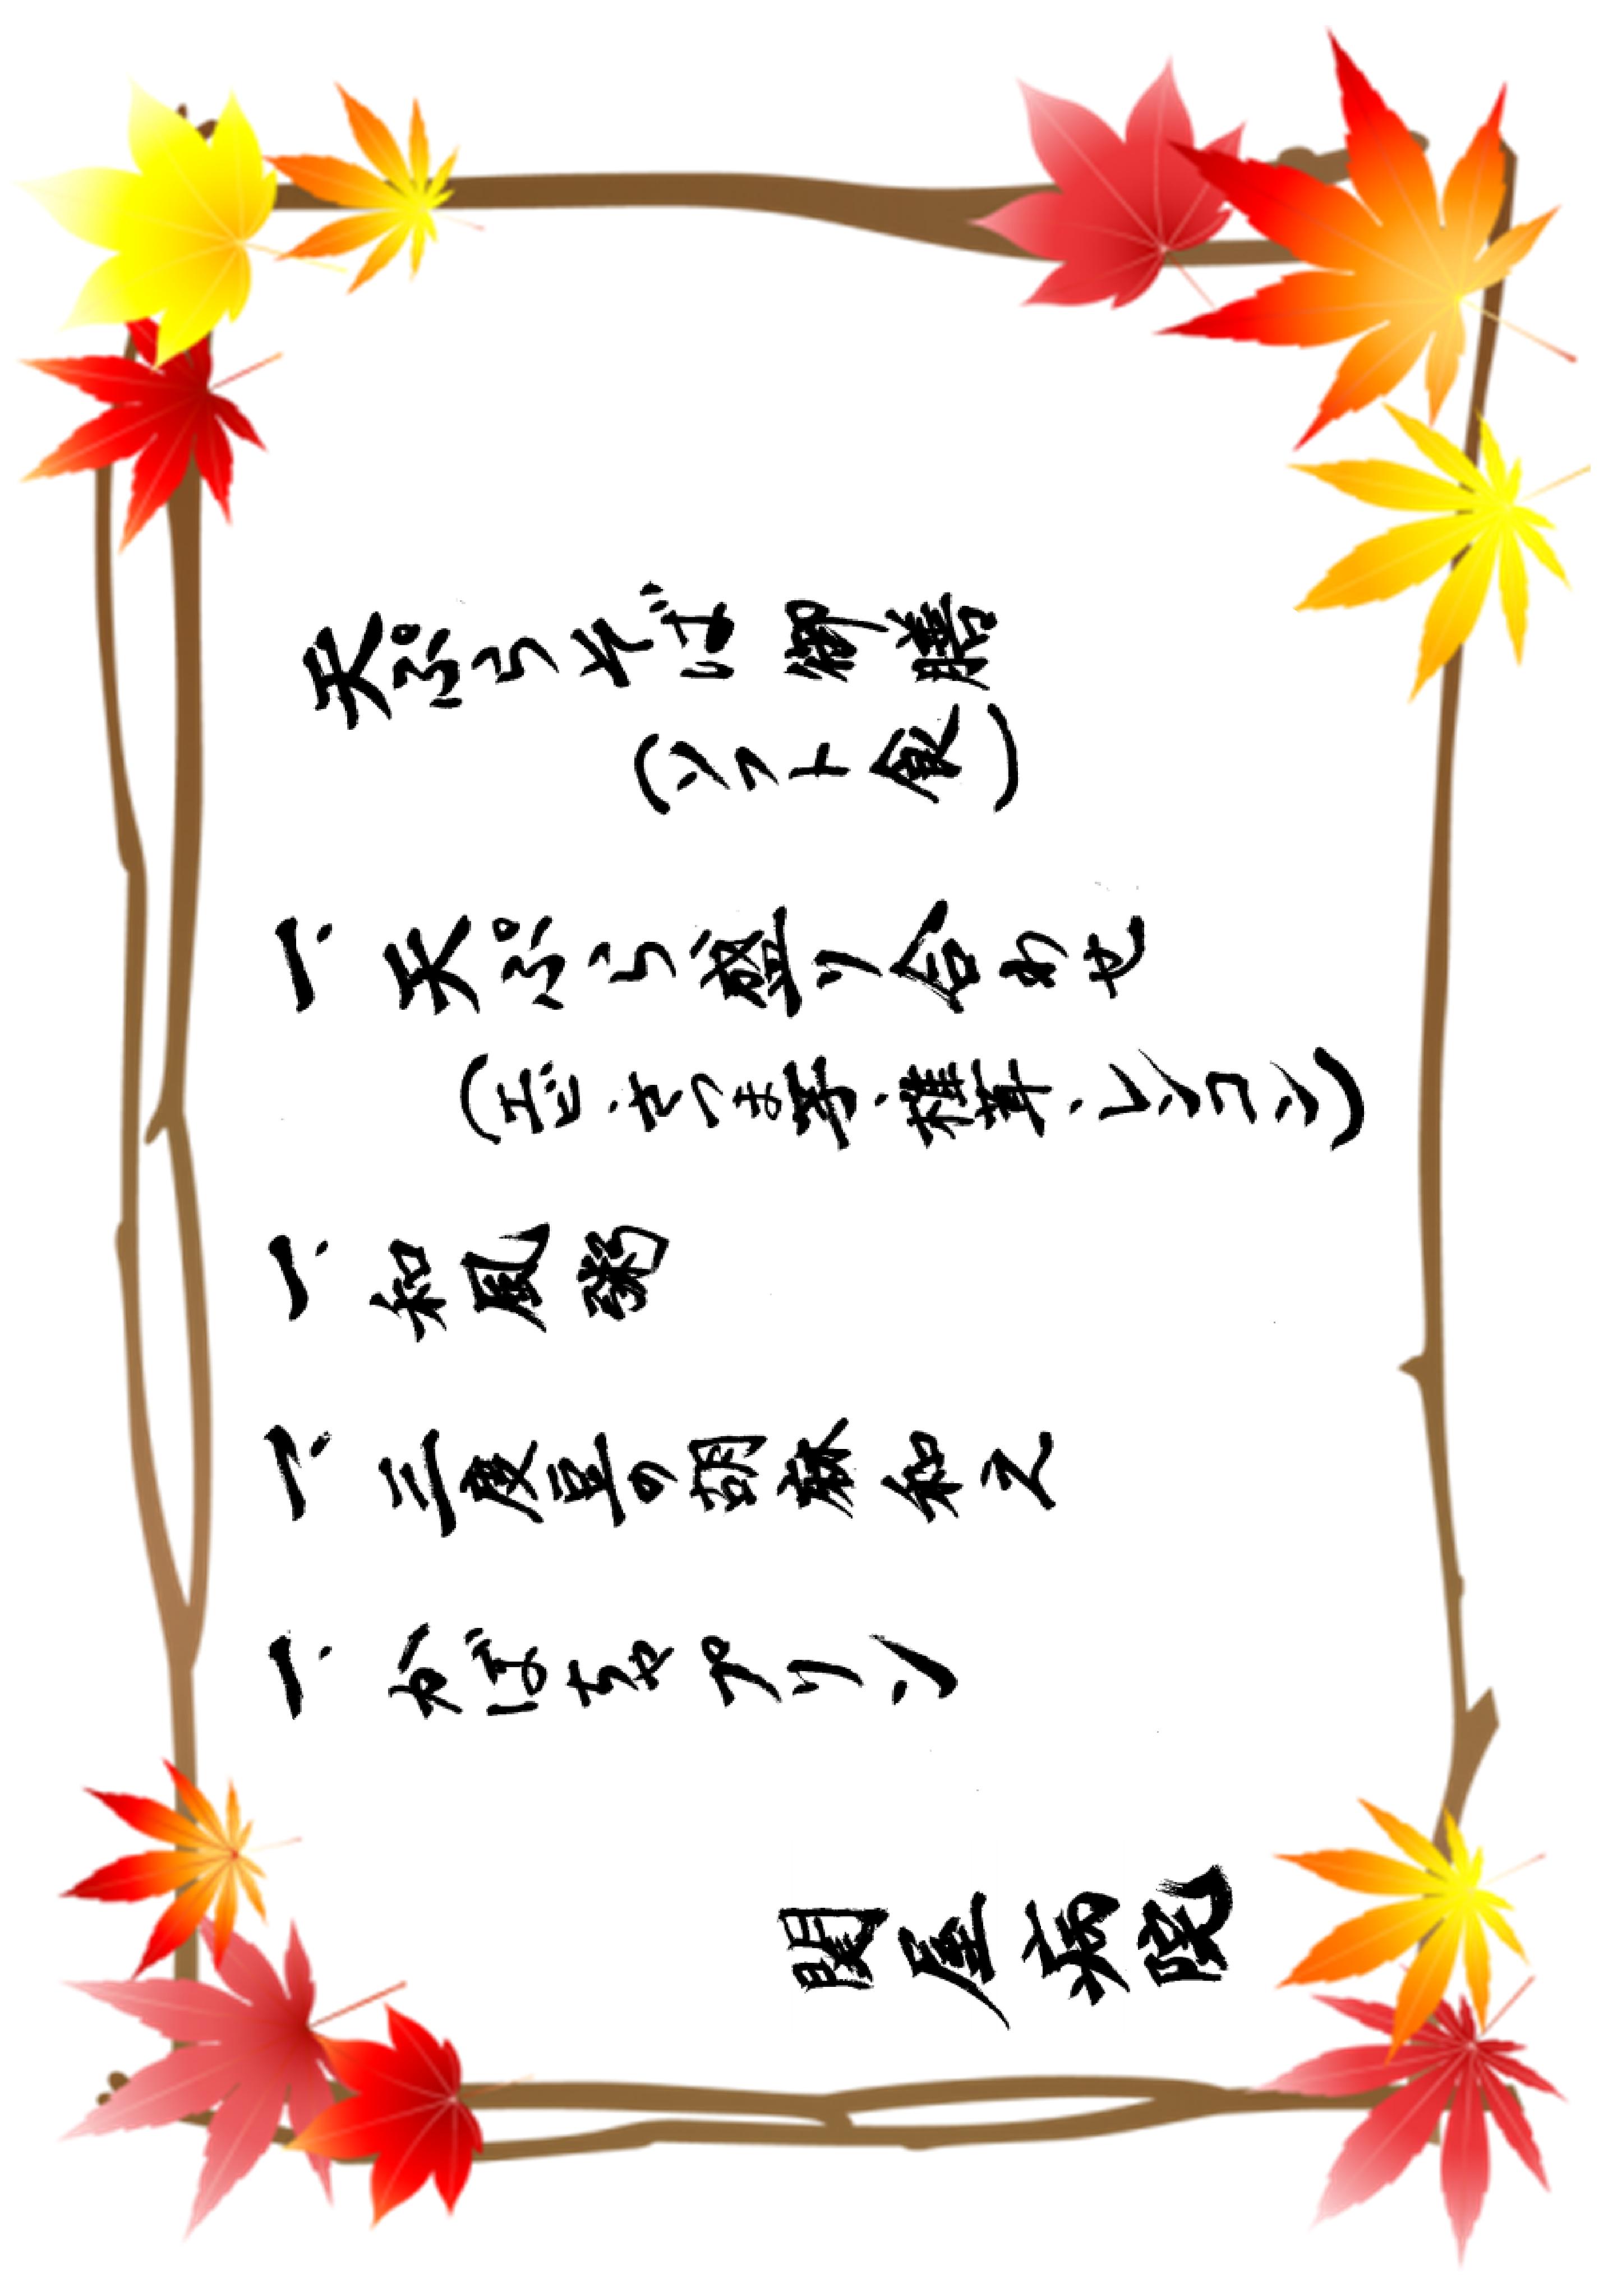 天ぷらそば御膳
(ソフト食)
一、天ぷら盛り合わせ
(エビ・さつま芋・椎茸・レンコン)
一、和風粥
一、三度豆の胡麻和え
一、かぼちゃプリン
関屋病院